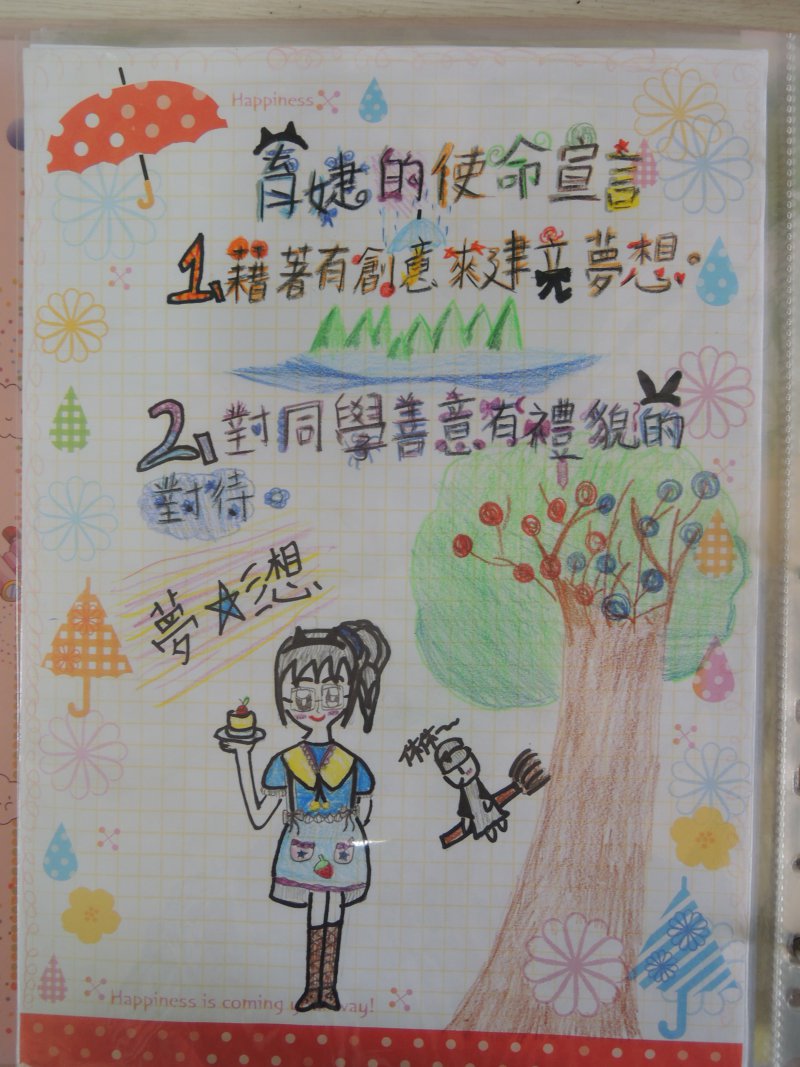 Happiness
育婕的使命宣言
1.藉著有創意來建立夢想。
2.對同學善意有禮貌的
對待。
夢想
咻咻~
Happiness is coming your way!